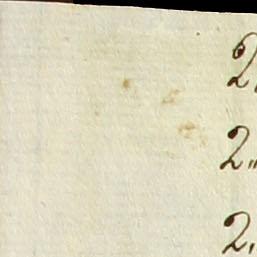 2.
2..
2.